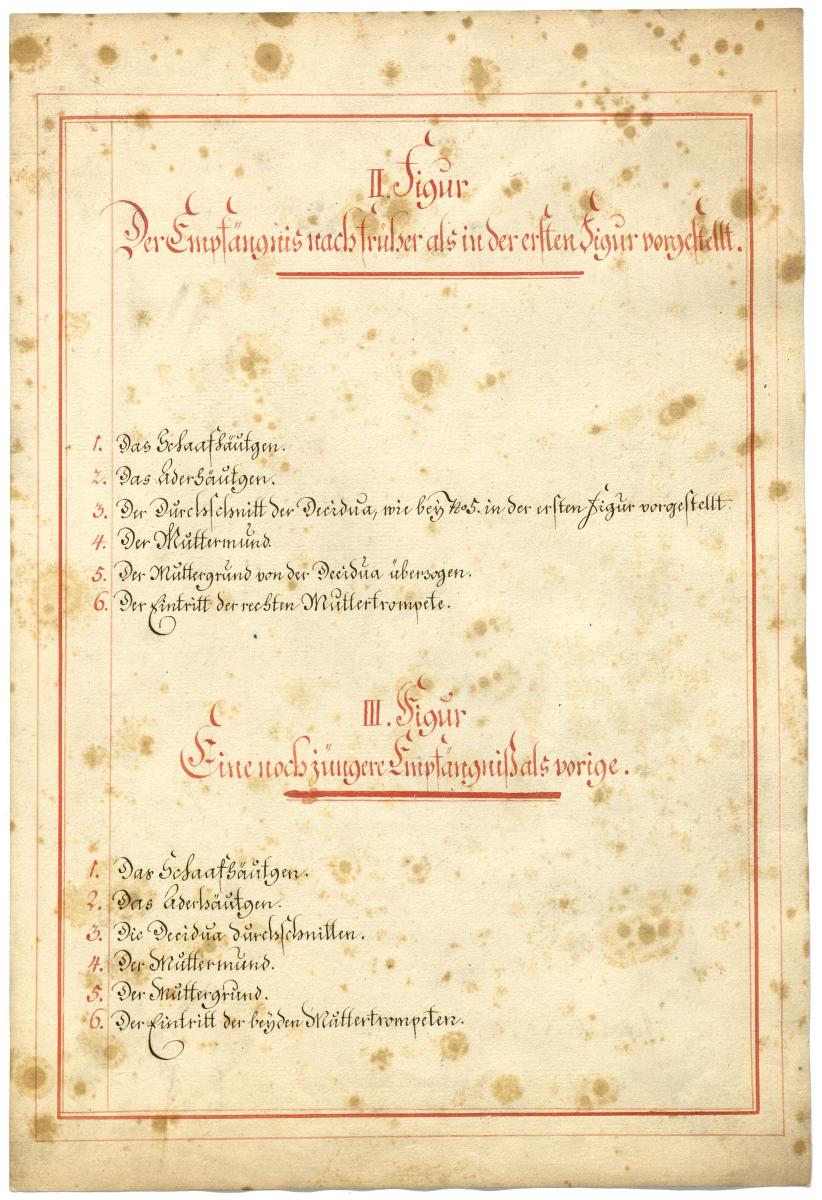 II. Figur
Der Empfängnis nach früher als in der ersten Figur vorgestellt.
1. Das Schaafhäutgen.
2. Das Aderhäutgen.
3. Der Durchschnitt der Decidua, wie bey No 5. in der ersten Figur vorgestellt.
4. Der Muttermund.
5. Der Muttergrund von der Decidua überzogen.
6. Der Eintritt der rechten Muttertrompete.
III. Figur
Eine noch jüngere Empfängniß als vorige.
1. Das Schaafhäutgen.
2. Das Aderhäutgen.
3. Die Decidua durchschnitten.
4. Der Muttermund.
5. Der Muttergrund.
6. Der Eintritt der beyden Muttertrompeten.